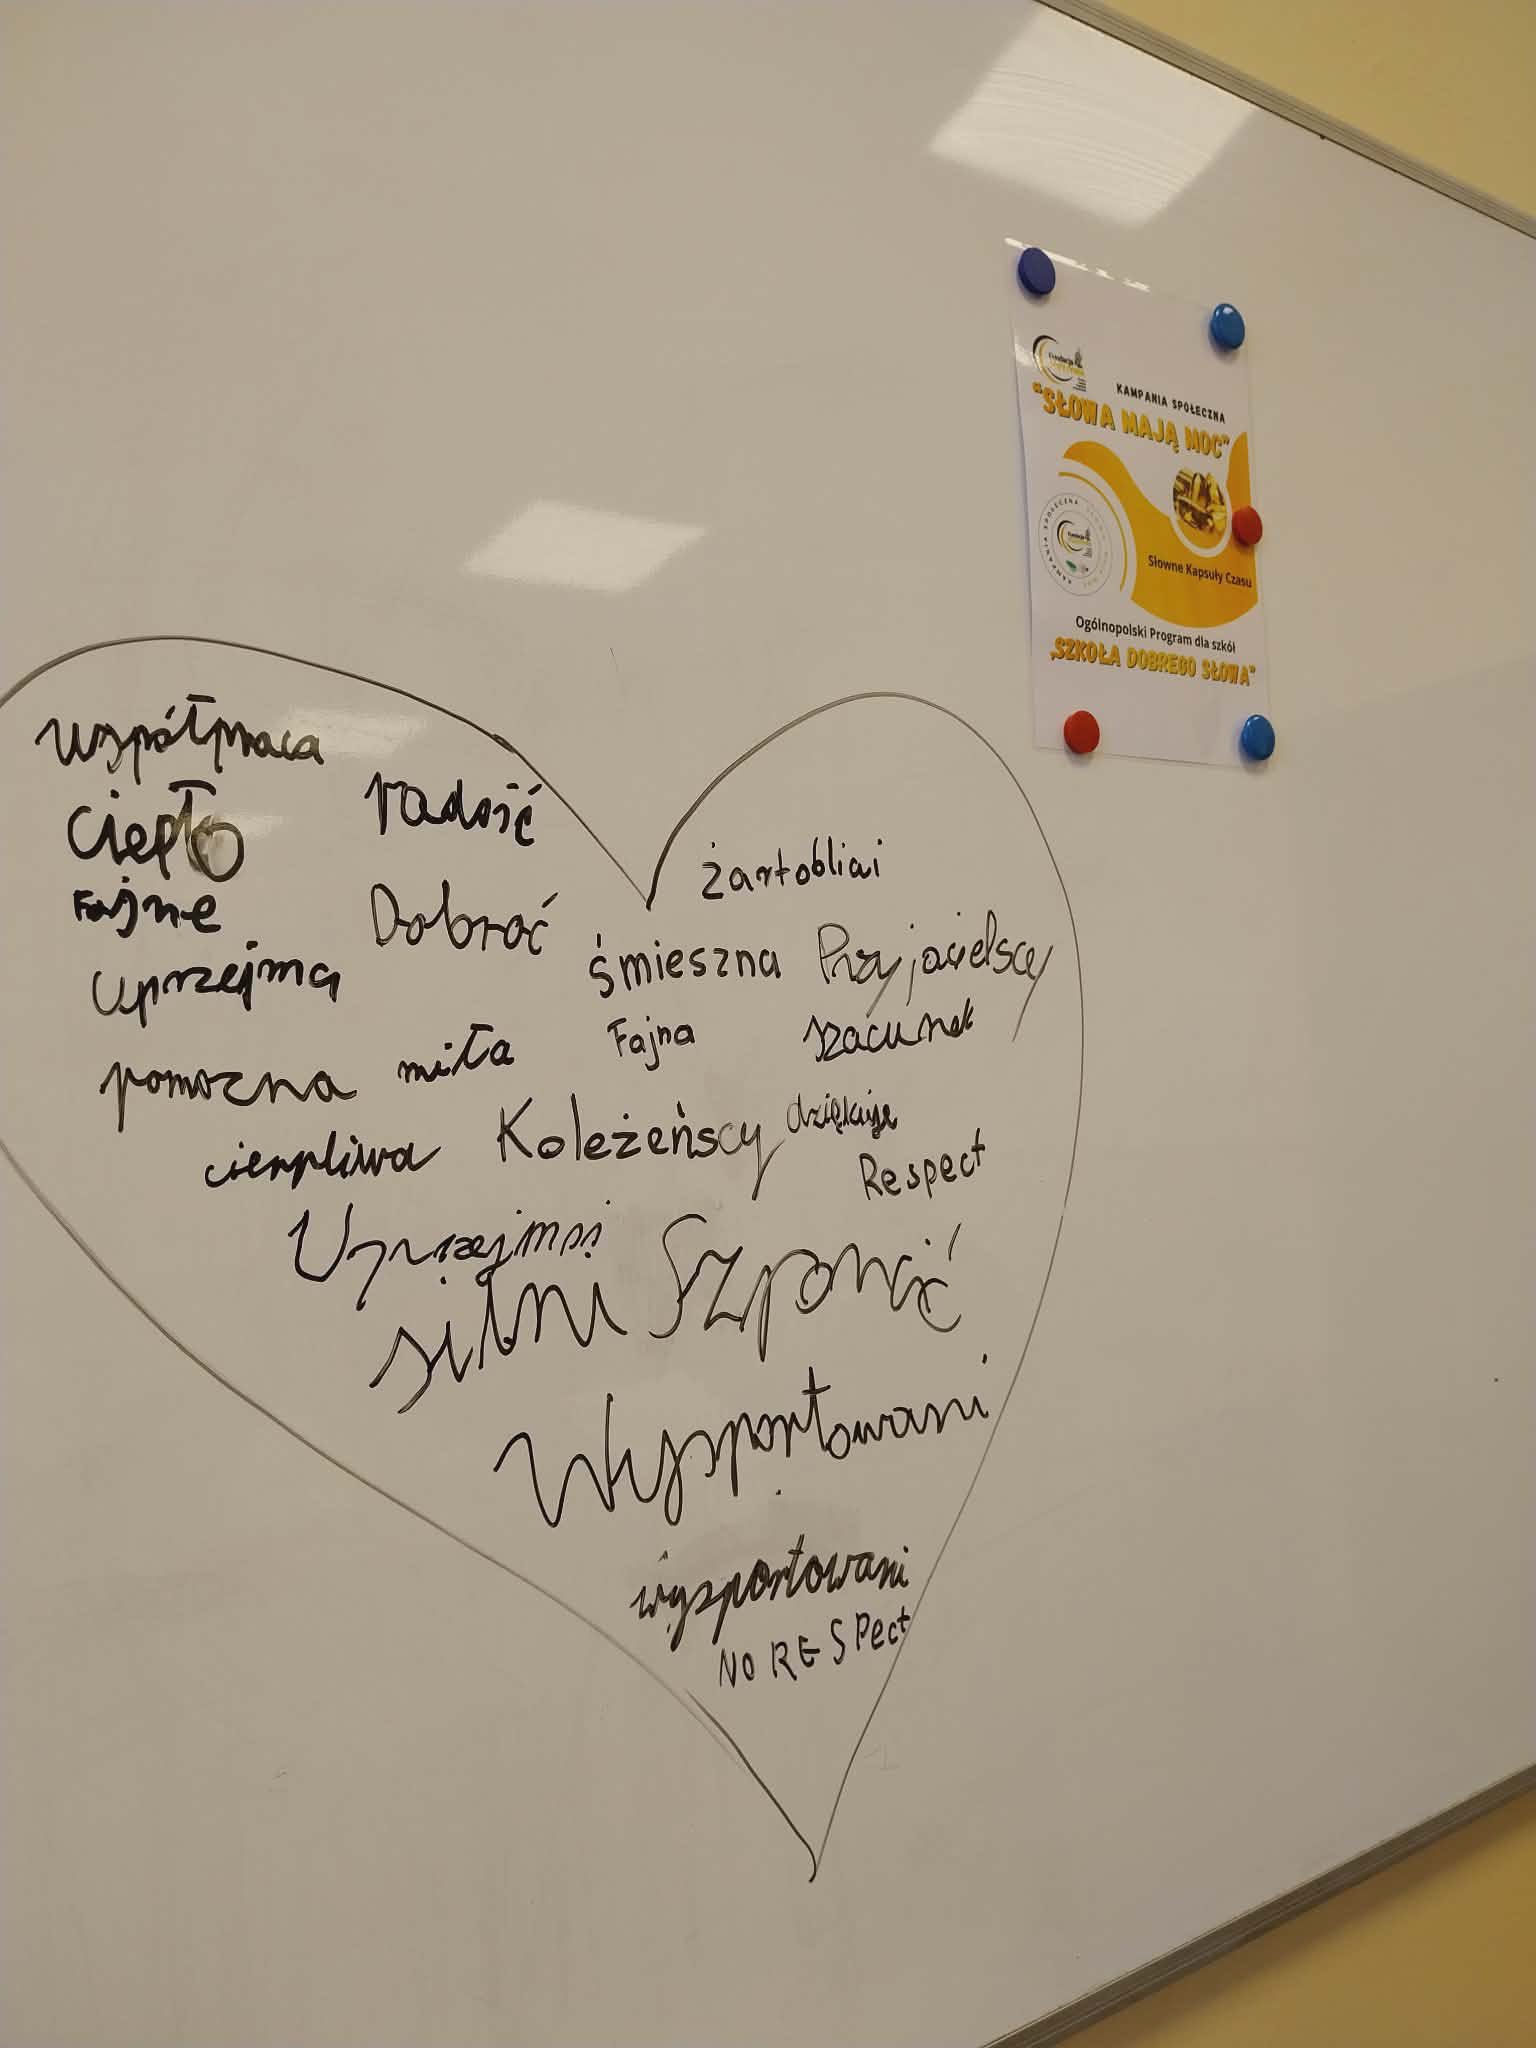 Fundacja
KAMPANIA SPOŁECZNA
"SŁOWA MAJĄ MOC"
KAMPANIA SPOŁECZNA
Fundacja
Słowne Kapsuły Czasu
Ogólnopolski Program dla szkół
„SZKOŁA DOBREGO SŁOWA"
współpraca
ciepło radość
żartobliai
Fajne Dobroć
uprzejma śmieszna Przyjacielscy
pomocna miła Fajna szacunek
cierpliwa Koleżeńscy dziękuje
Respect
Uprzejmości
silni
Wysportowani
wysportowani
NO RESPect